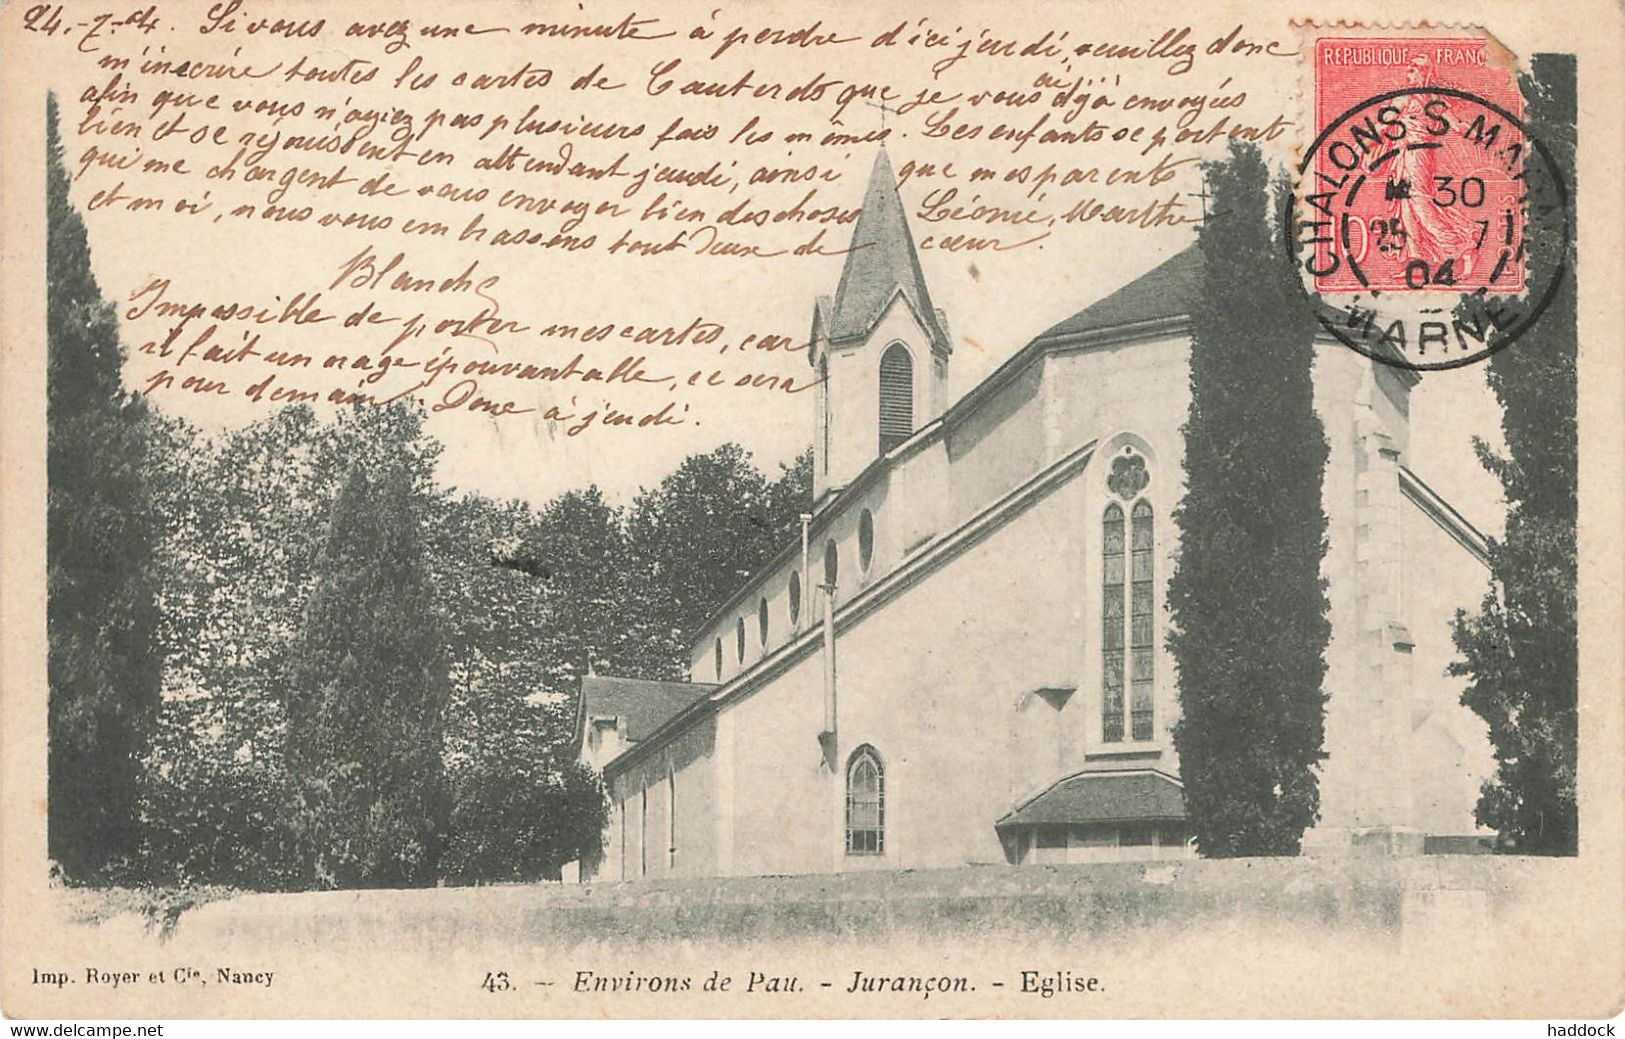 24-7-04. Si vous avez une minute à perdre d'ici jeudi, veuillez donc
m'inscrire toutes les cartes de Cauterets que je vous ai déjà envoyées
afin que vous n'ayiez pas plusieurs fois les mêmes. Les enfants se portent
bien et se réjouissent en attendant jeudi, ainsi que mes parents
qui me chargent de vous envoyer bien des choses. Léonie, Marthe
et moi, nous vous embrassons tout deux de cœur.
Blanche
Impossible de porter mes cartes, car
il fait un orage épouvantable, ce sera
pour demain. Donc à jeudi.
REPUBLIQUE FRANC
10
CHALONS-S-MARNE
30
25 7
04
MARNE
Imp. Royer et Cie, Nancy
43. - Environs de Pau. - Jurançon. - Eglise.
haddock